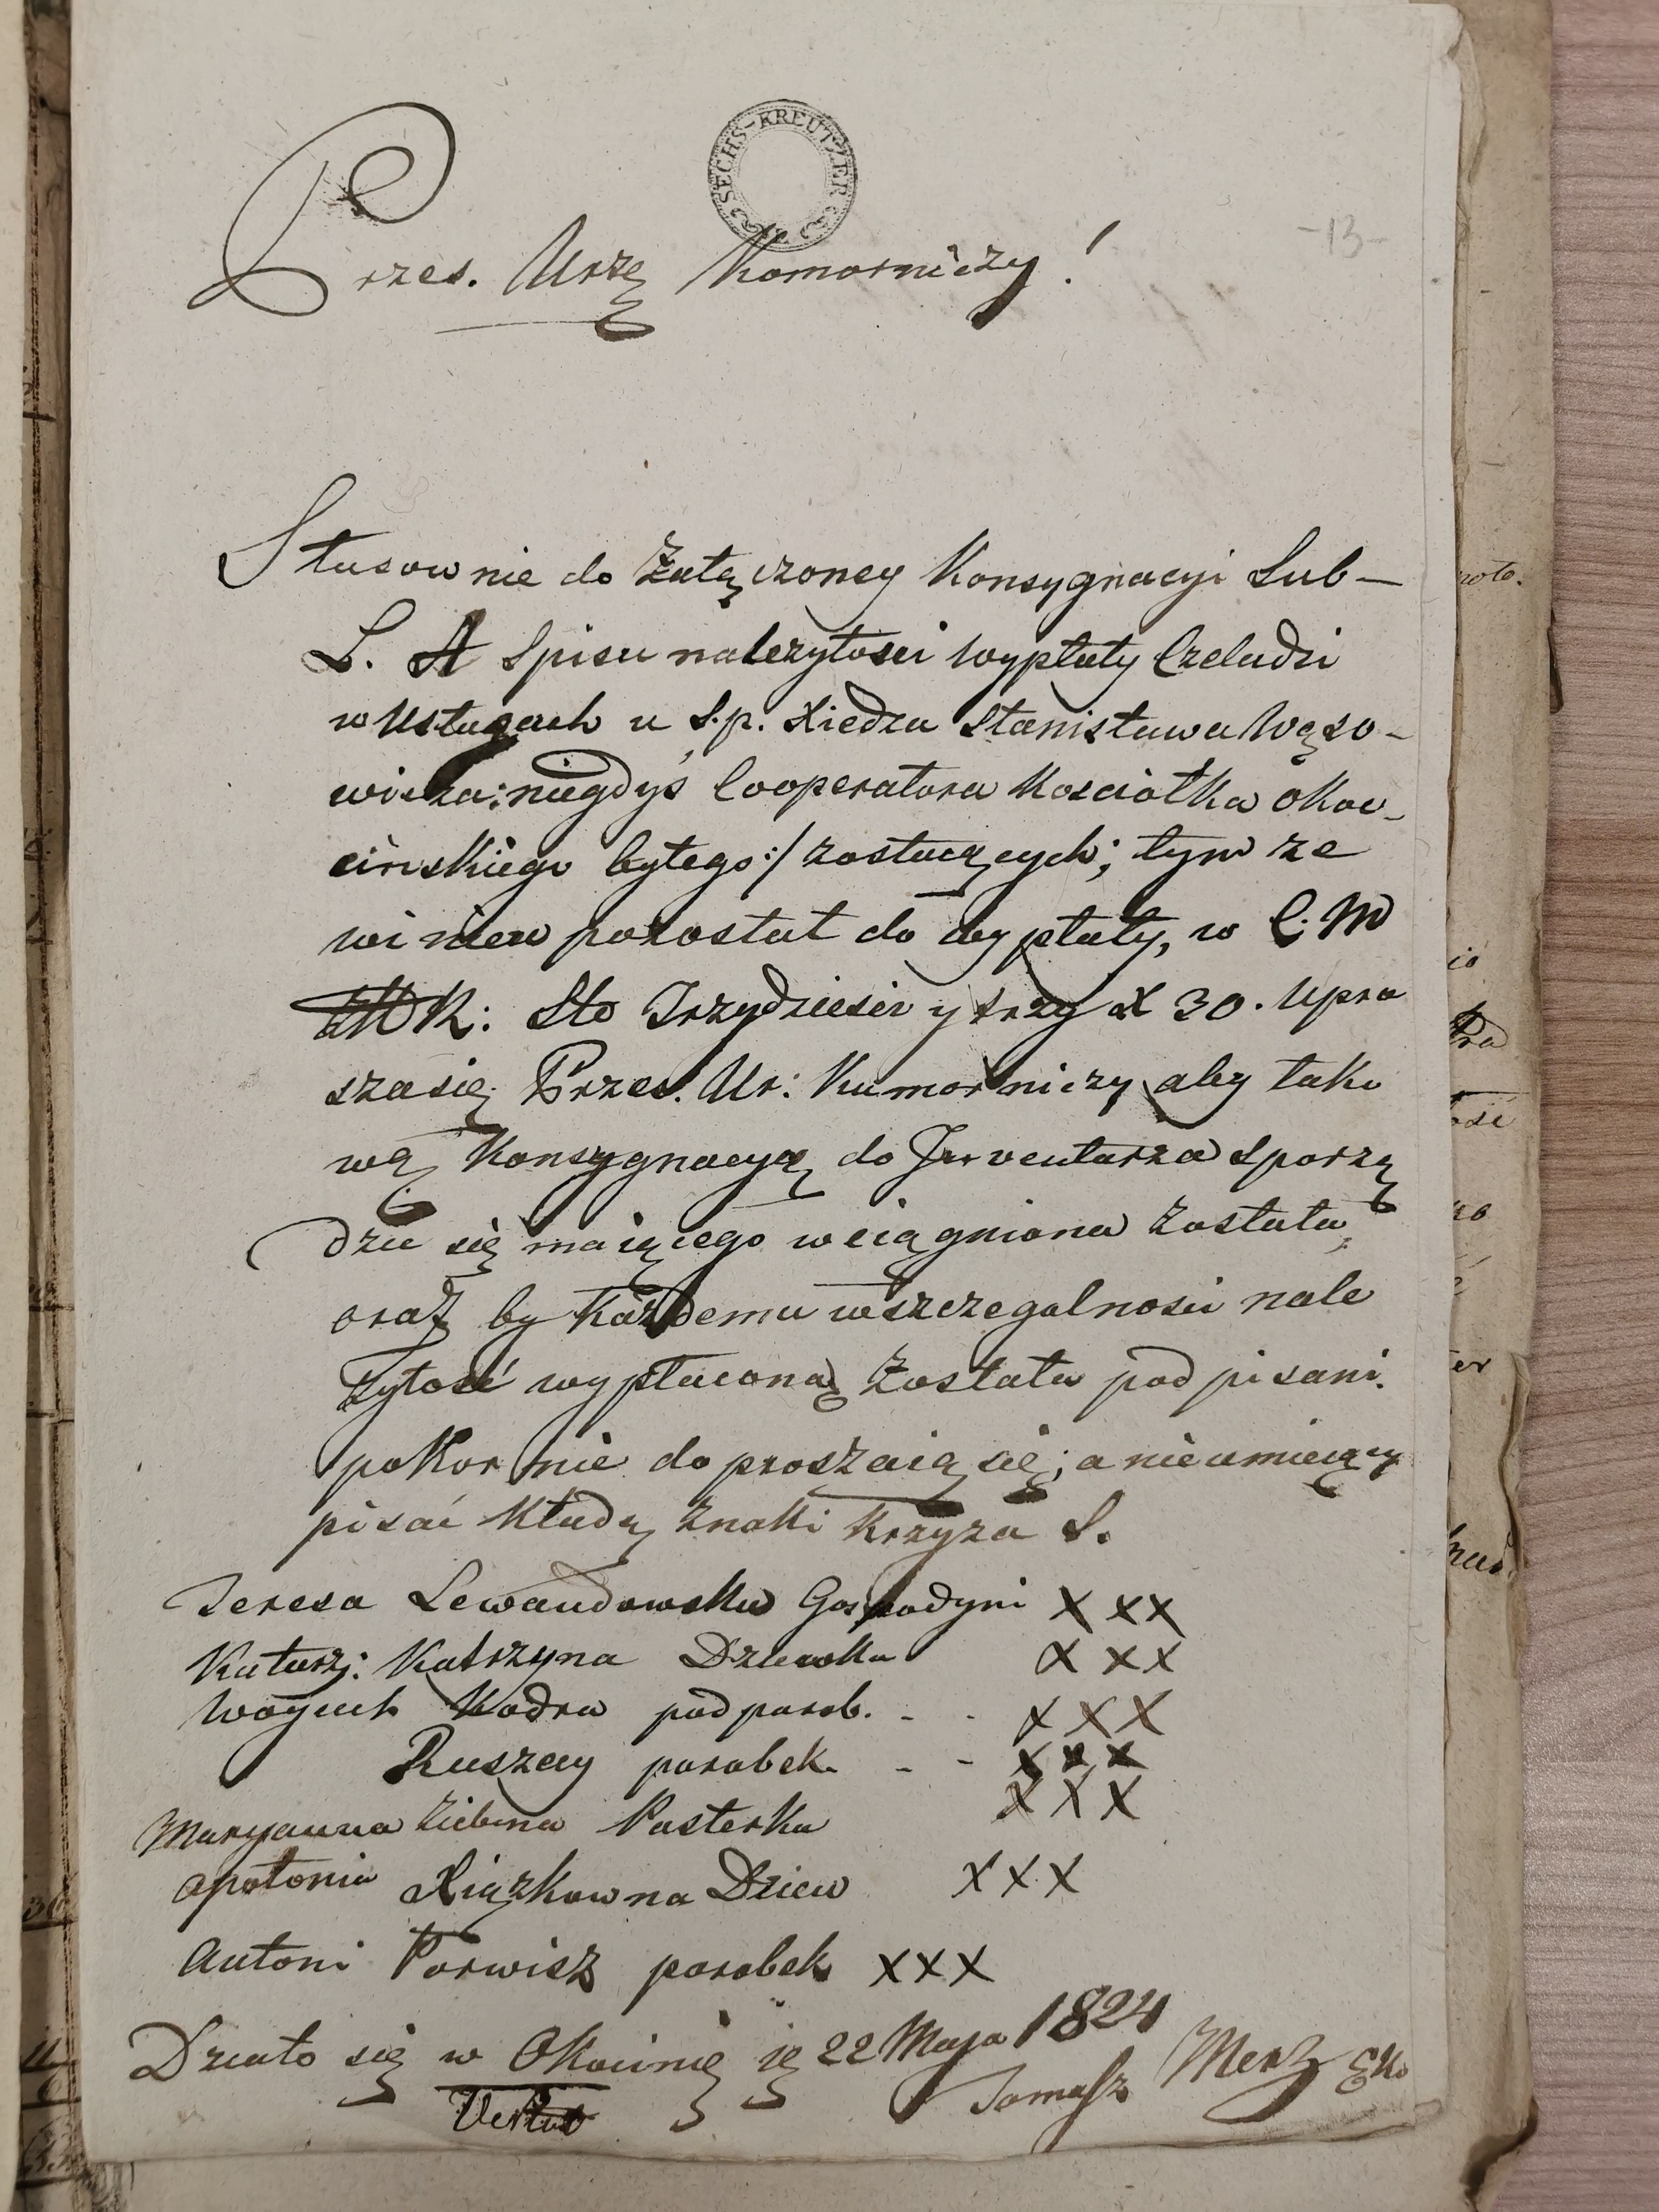 SECHS-KREUTZER
-13-
Przes. Urzę Komorniczy!
Stusownie do Załączoney Konsygnacyi Sub-
L. A Spisu należytosci wypłuty Czeludzi
w Usługach u S.p. Xiedza Stanisława Wąso-
wicza: niegdyś Cooperatora Kosciołka Okoc-
cinskiego byłego:/ zostuiących; tym ze
winien pozostał do wypłuty, w C: M
R: Sto Trzydziesci y trzy X 30. Upra
sza się Przes. Ur: Kumorniczy aby tako
wą Konsygnacyą do Inwentarza sporzą
dzic się maiącego wciągniona została,
oraz by Każdemu wszczegolnosci nale
zytość wypłacona została pod pisani.
pokornie do praszaią się; a nieumieiący
pisać Kładą znaki Krzyża S.
Teresa Lewandowska Gospodyni X X X
Katarz: Katrzyna Dziewka X X X
Woyciech Kodra pod parob. - - X X X
Ruszay parobek - - X X X
Maryanna Ziebina Pasterka X X X
Apolonia Xiązkowna Dziew X X X
Antoni Porwisz parobek X X X
Działo się w Okocimię ię 22 Maja 1824
Tomasz Merz Eko